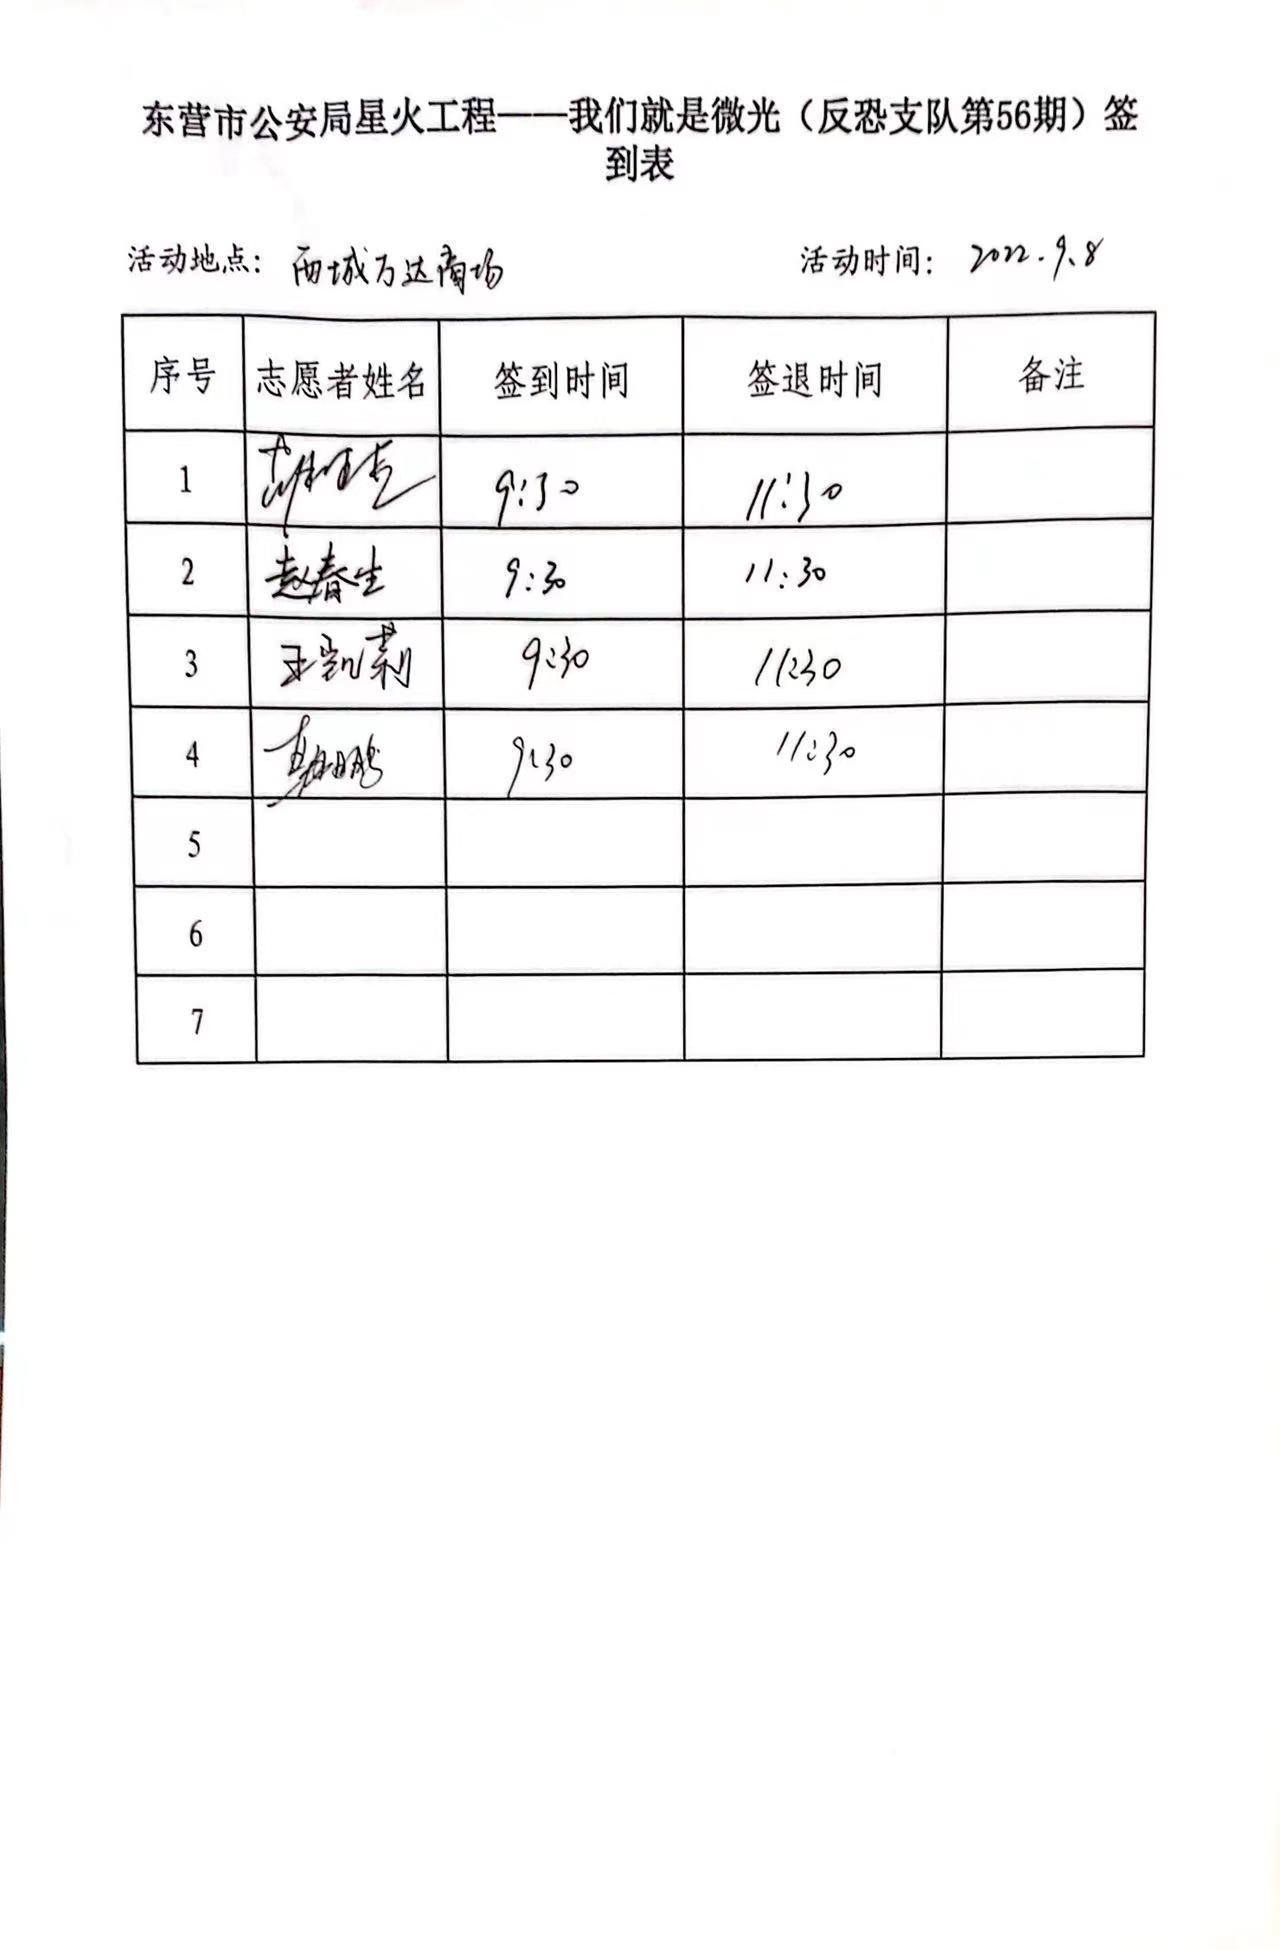 东营市公安局星火工程——我们就是微光（反恐支队第56期）签
到表
活动地点：西城万达商场 活动时间：2022.9.8
序号 志愿者姓名 签到时间 签退时间 备注
1 9:30 11:30
2 赵春生 9:30 11:30
3 王凯莉 9:30 11:30
4 9:30 11:30
5
6
7